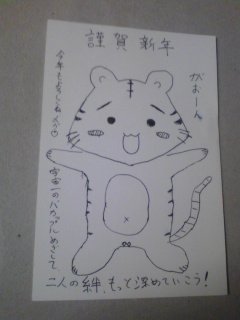 謹賀新年
がおーん
今年もよろしくね
宇宙一のバカップルめざして、
二人の絆、もっと深めていこう!